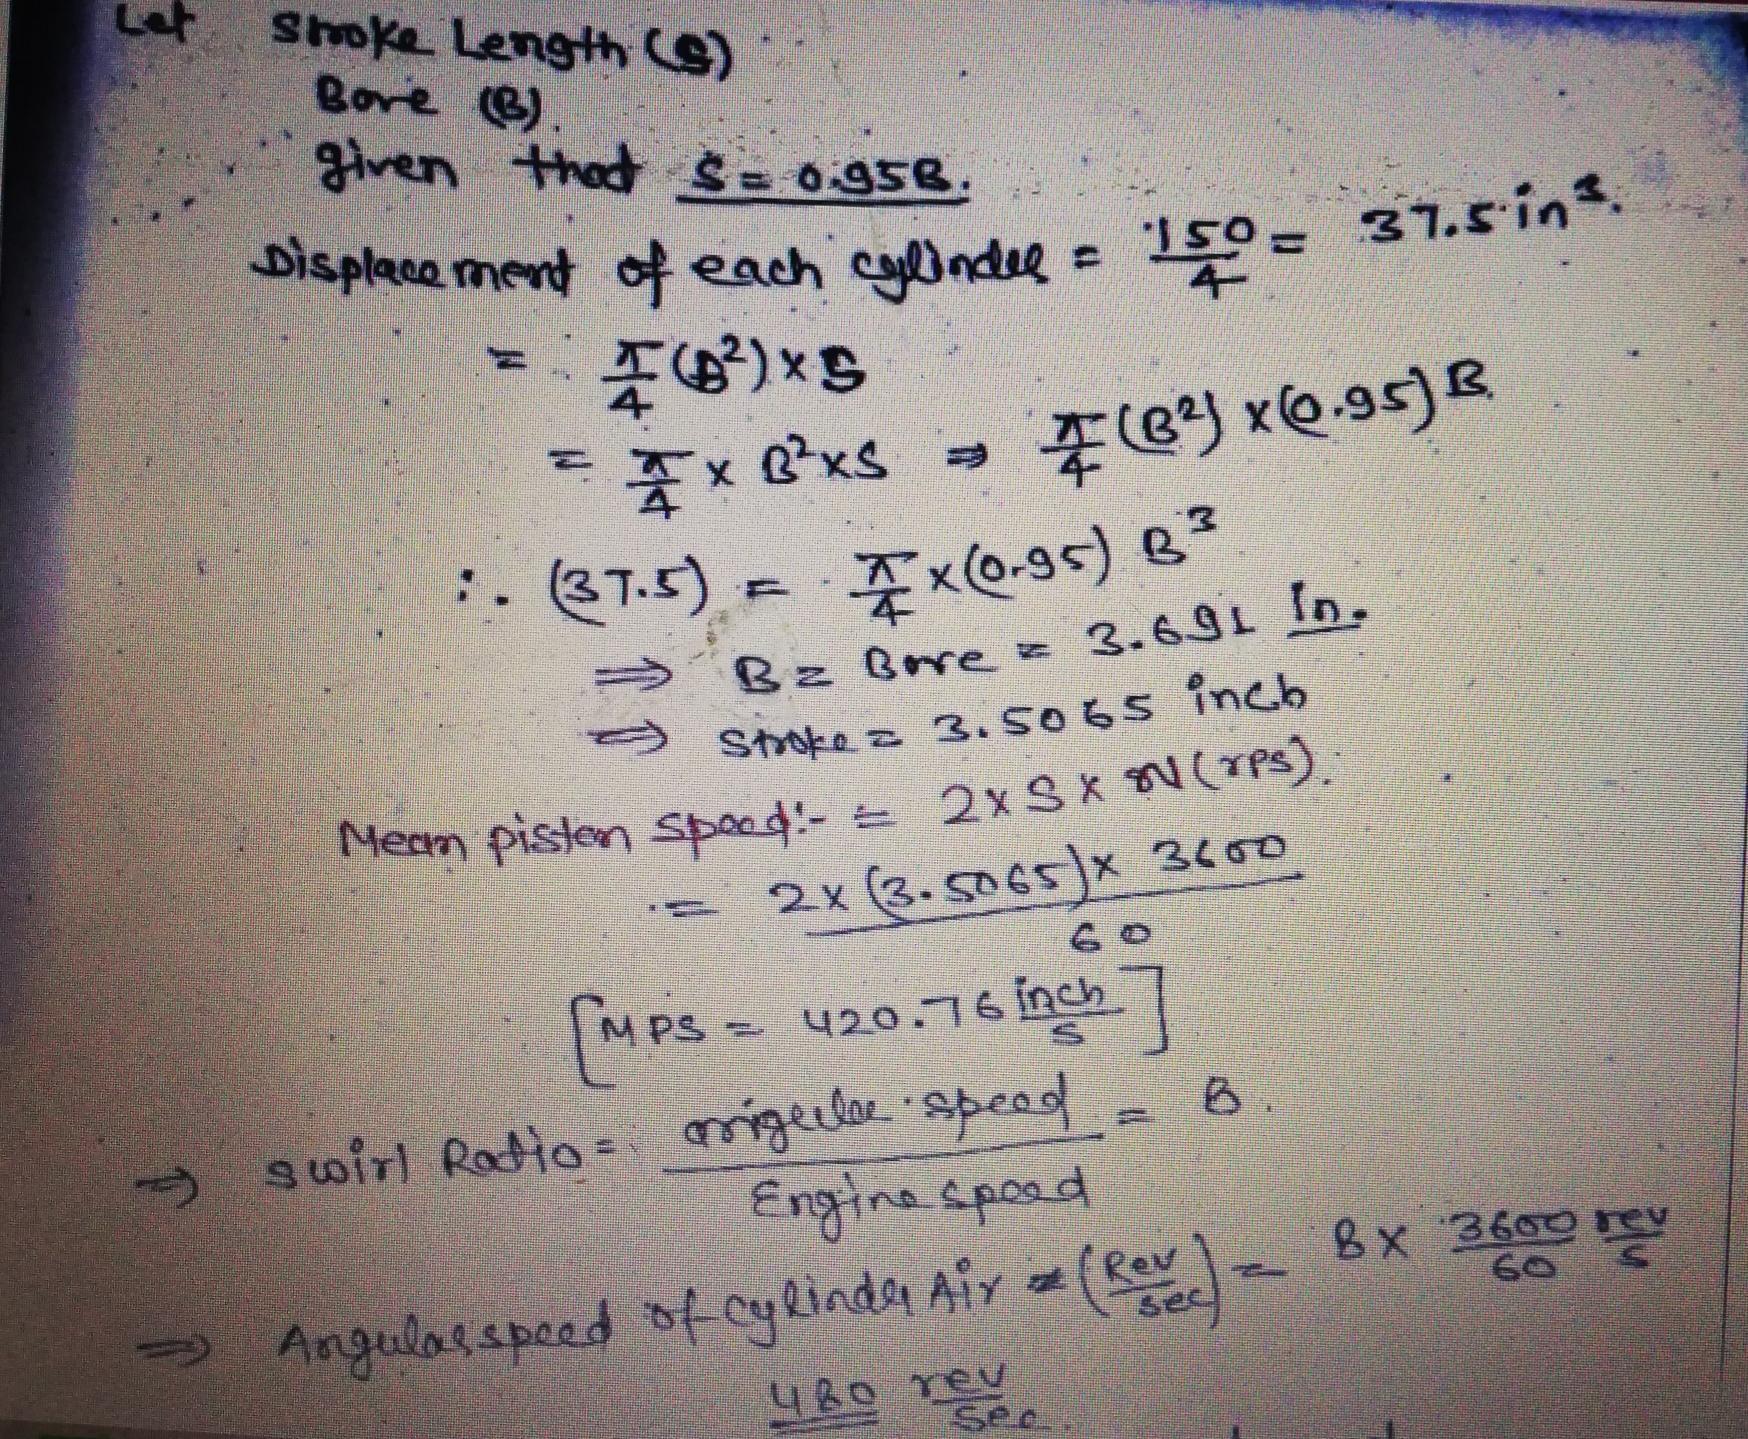 Let Stroke Length (S)
Bore (B).
given that S = 0.95B.
Displacement of each cylinder = 150/4 = 37.5 in³.
= π/4 (B²) × S
= π/4 × B² × S ⇒ π/4 (B²) × (0.95) B.
∴ (37.5) = π/4 × (0.95) B³
⇒ B = Bore = 3.691 In.
⇒ Stroke = 3.5065 inch
Mean piston speed:- = 2 × S × N (rps).
= 2 × (3.5065) × 3600 / 60
[MPS = 420.76 inch/s]
⇒ swirl Ratio = angular speed / Engine speed = 8.
⇒ Angular speed of cylinder Air = (Rev/sec) = 8 × 3600/60 rev/s
480 rev/sec.